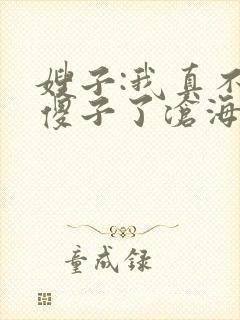 嫂子:我真不
傻子了滄海
童成録